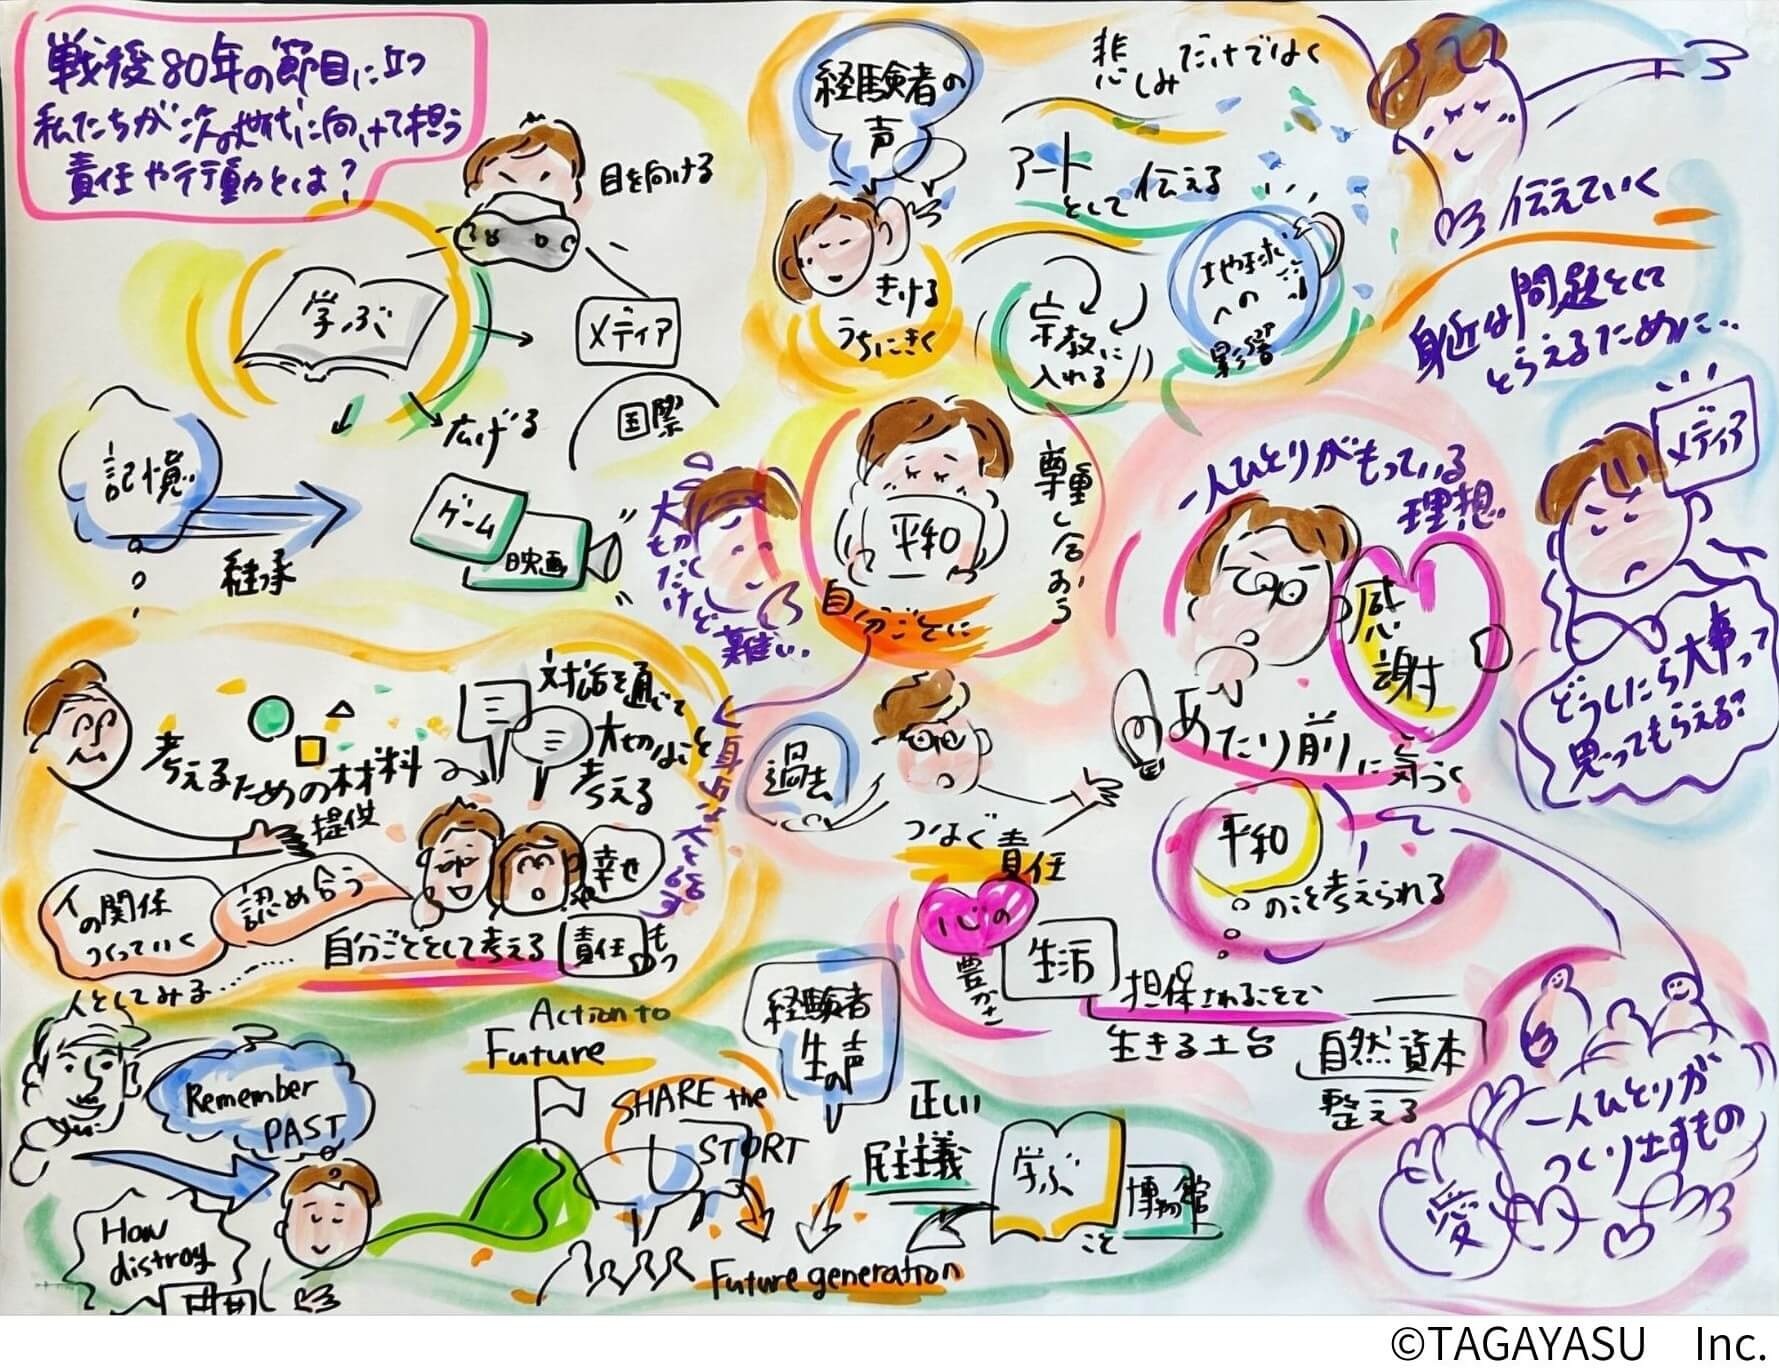 戦後80年の節目に立つ
私たちが次の世代に向けて担う
責任や行動とは?
目を向ける
学ぶ
メディア
広げる
国際
記憶
継承
ゲーム
映画
経験者の
声
きける
うちにきく
悲しみだけではく
アート
として伝える
宗教に
入れる
地球
への
影響
伝えていく
身近な問題として
とらえるために…
メディア
どうしたら大事って
思ってもらえる?
大切
だけど
難しい.
平和
自分ごとに
尊重し合おう
一人ひとりがもっている
理想
感
謝
あたり前に気づく
平和
のことを考えられる
過去
つなぐ責任
心の
豊かさ
生活
担保されることで
生きる土台
自然資本
整える
一人ひとりが
つくり出すもの
愛
考えるための材料
提供
対話を通じて
大切なこと
考える
人の関係
つくっていく
認め合う
幸せ
自分ごととして考える
責任
もつ
人としてみる…
Remember
PAST
How
distroy
Action to
Future
SHARE the
STORY
経験者
生の声
正しい
民主主義
学ぶ
こと
博物館
Future generation
©TAGAYASU Inc.